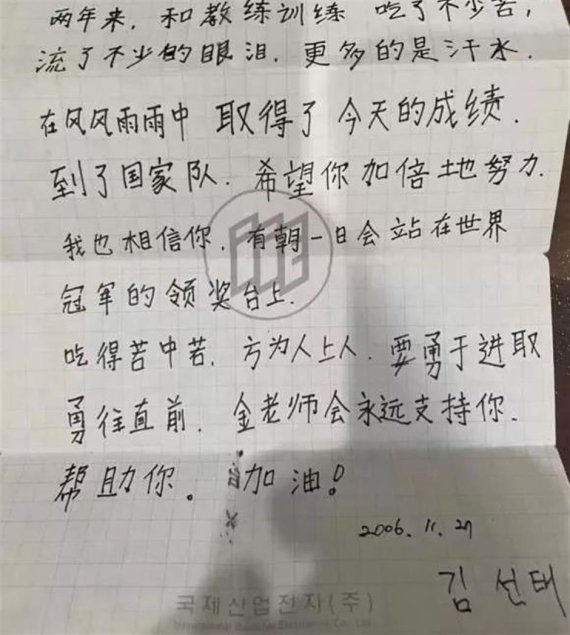 两年来，和教练训练 吃了不少苦，
流了不少的眼泪．更多的是汗水．
在风风雨雨中 取得了今天的成绩．
到了国家队．希望你加倍地努力．
我也相信你．有朝一日会站在世界
冠军的领奖台上．
吃得苦中苦．方为人上人．要勇于进取
勇往直前．金老师会永远支持你．
帮助你。加油！
2006.11.27
김선태
국제산업전자(주)